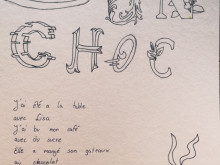 CHOC
J'ai été a la table
avec Lisa
J'ai bu mon café
avec du sucre
Elle a mangé son gateau
au chocolat